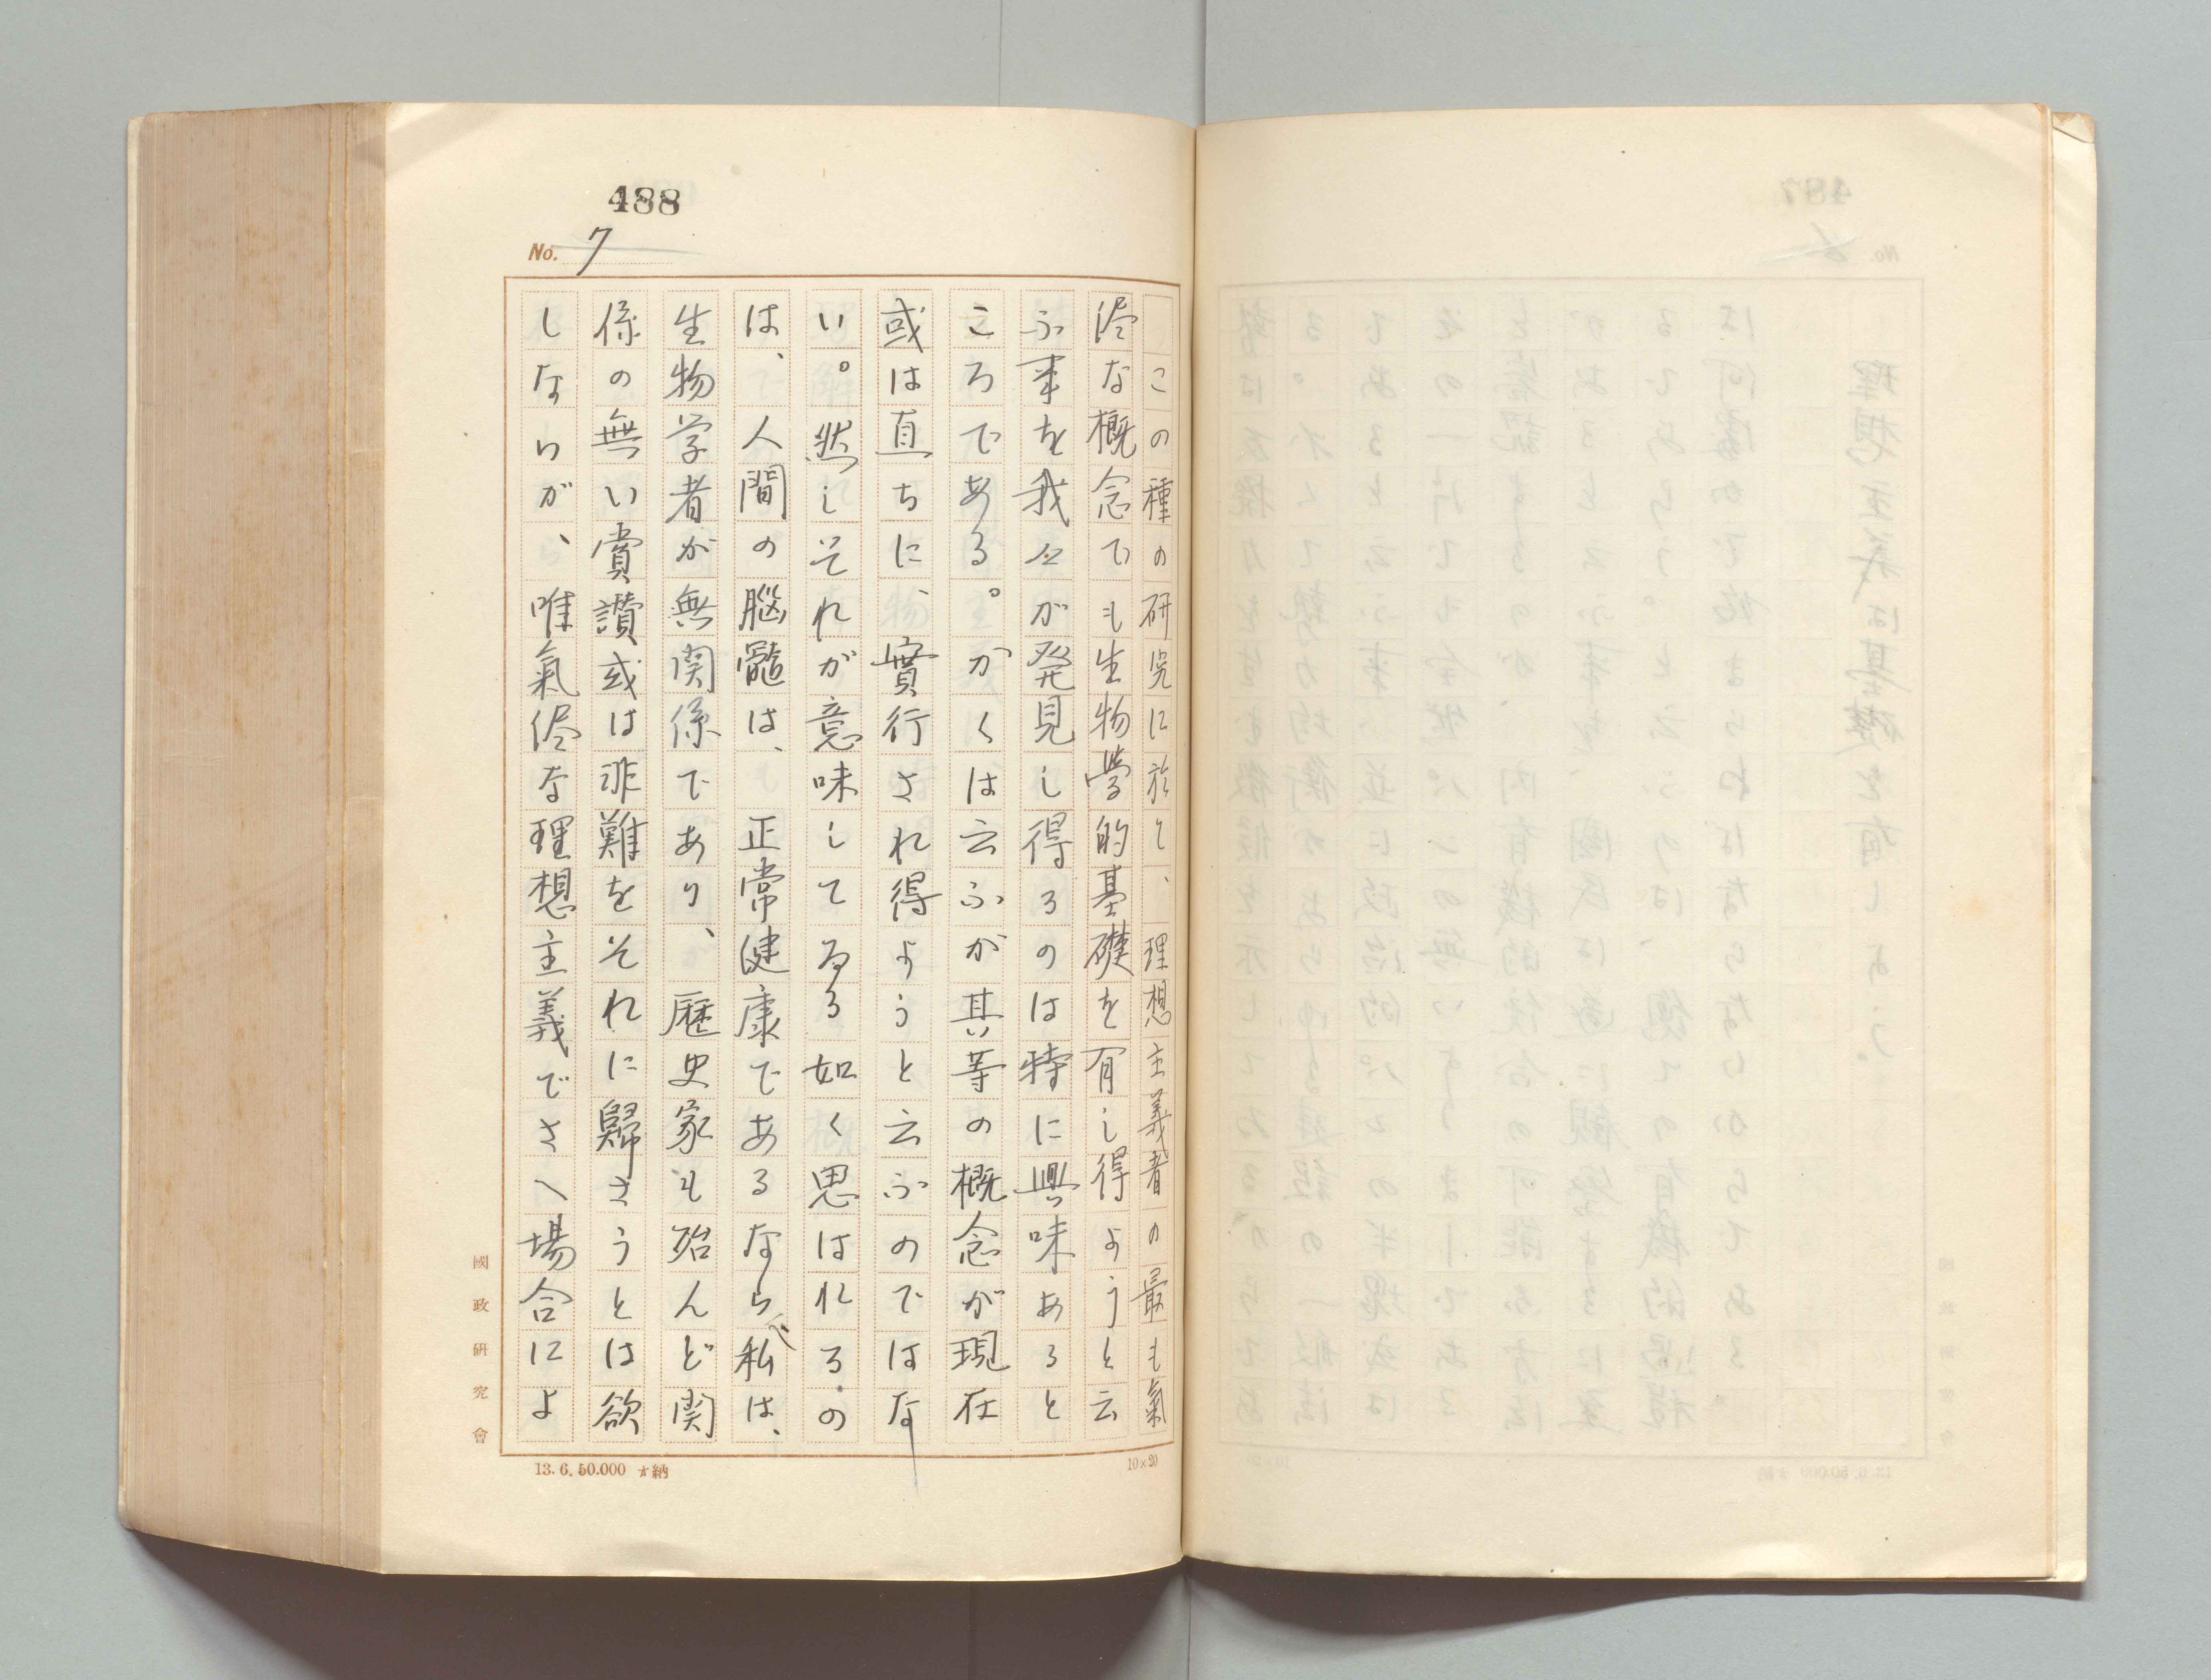 488
No. 7
この種の研究に於て、理想主義者の最も氣
侭な概念でも生物學的基礎を有し得ようと云
ふ事を我々が発見し得るのは特に興味あると
ころである。かくは云ふが其等の概念が現在
或は直ちに、實行され得ようと云ふのではな
い。然しそれが意味してゐる如く思はれるの
は、人間の腦髓は、正常健康であるなら、私は、
生物学者が無関係であり、歴史家も殆んど関
係の無い賞讃或は非難をそれに歸さうとは欲
しないが、唯氣侭な理想主義でさへ場合によ
國政研究會
13.6.50.000 納
10×20